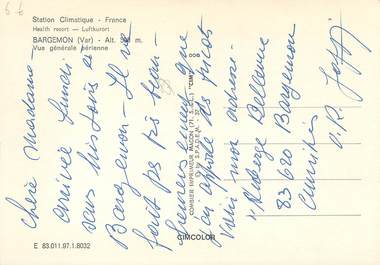 5 6
Station Climatique - France
Health resort — Luftkurort
BARGEMON (Var) - Alt. m.
Vue générale aérienne
Chère Madame -
arrivée lundi
sans histoires à
Bargemon - Il ne
fait pas très
heureusement que
j'ai apporté les tricots
Voici mon adresse :
"Auberge
83620 Bargemon
Amitiés
COMBIER IMPRIMEUR MACON (71. S.-&-L.) "CIM"
S.P.A.D.E.M.
CIMCOLOR
E 83.011.97.1.8032